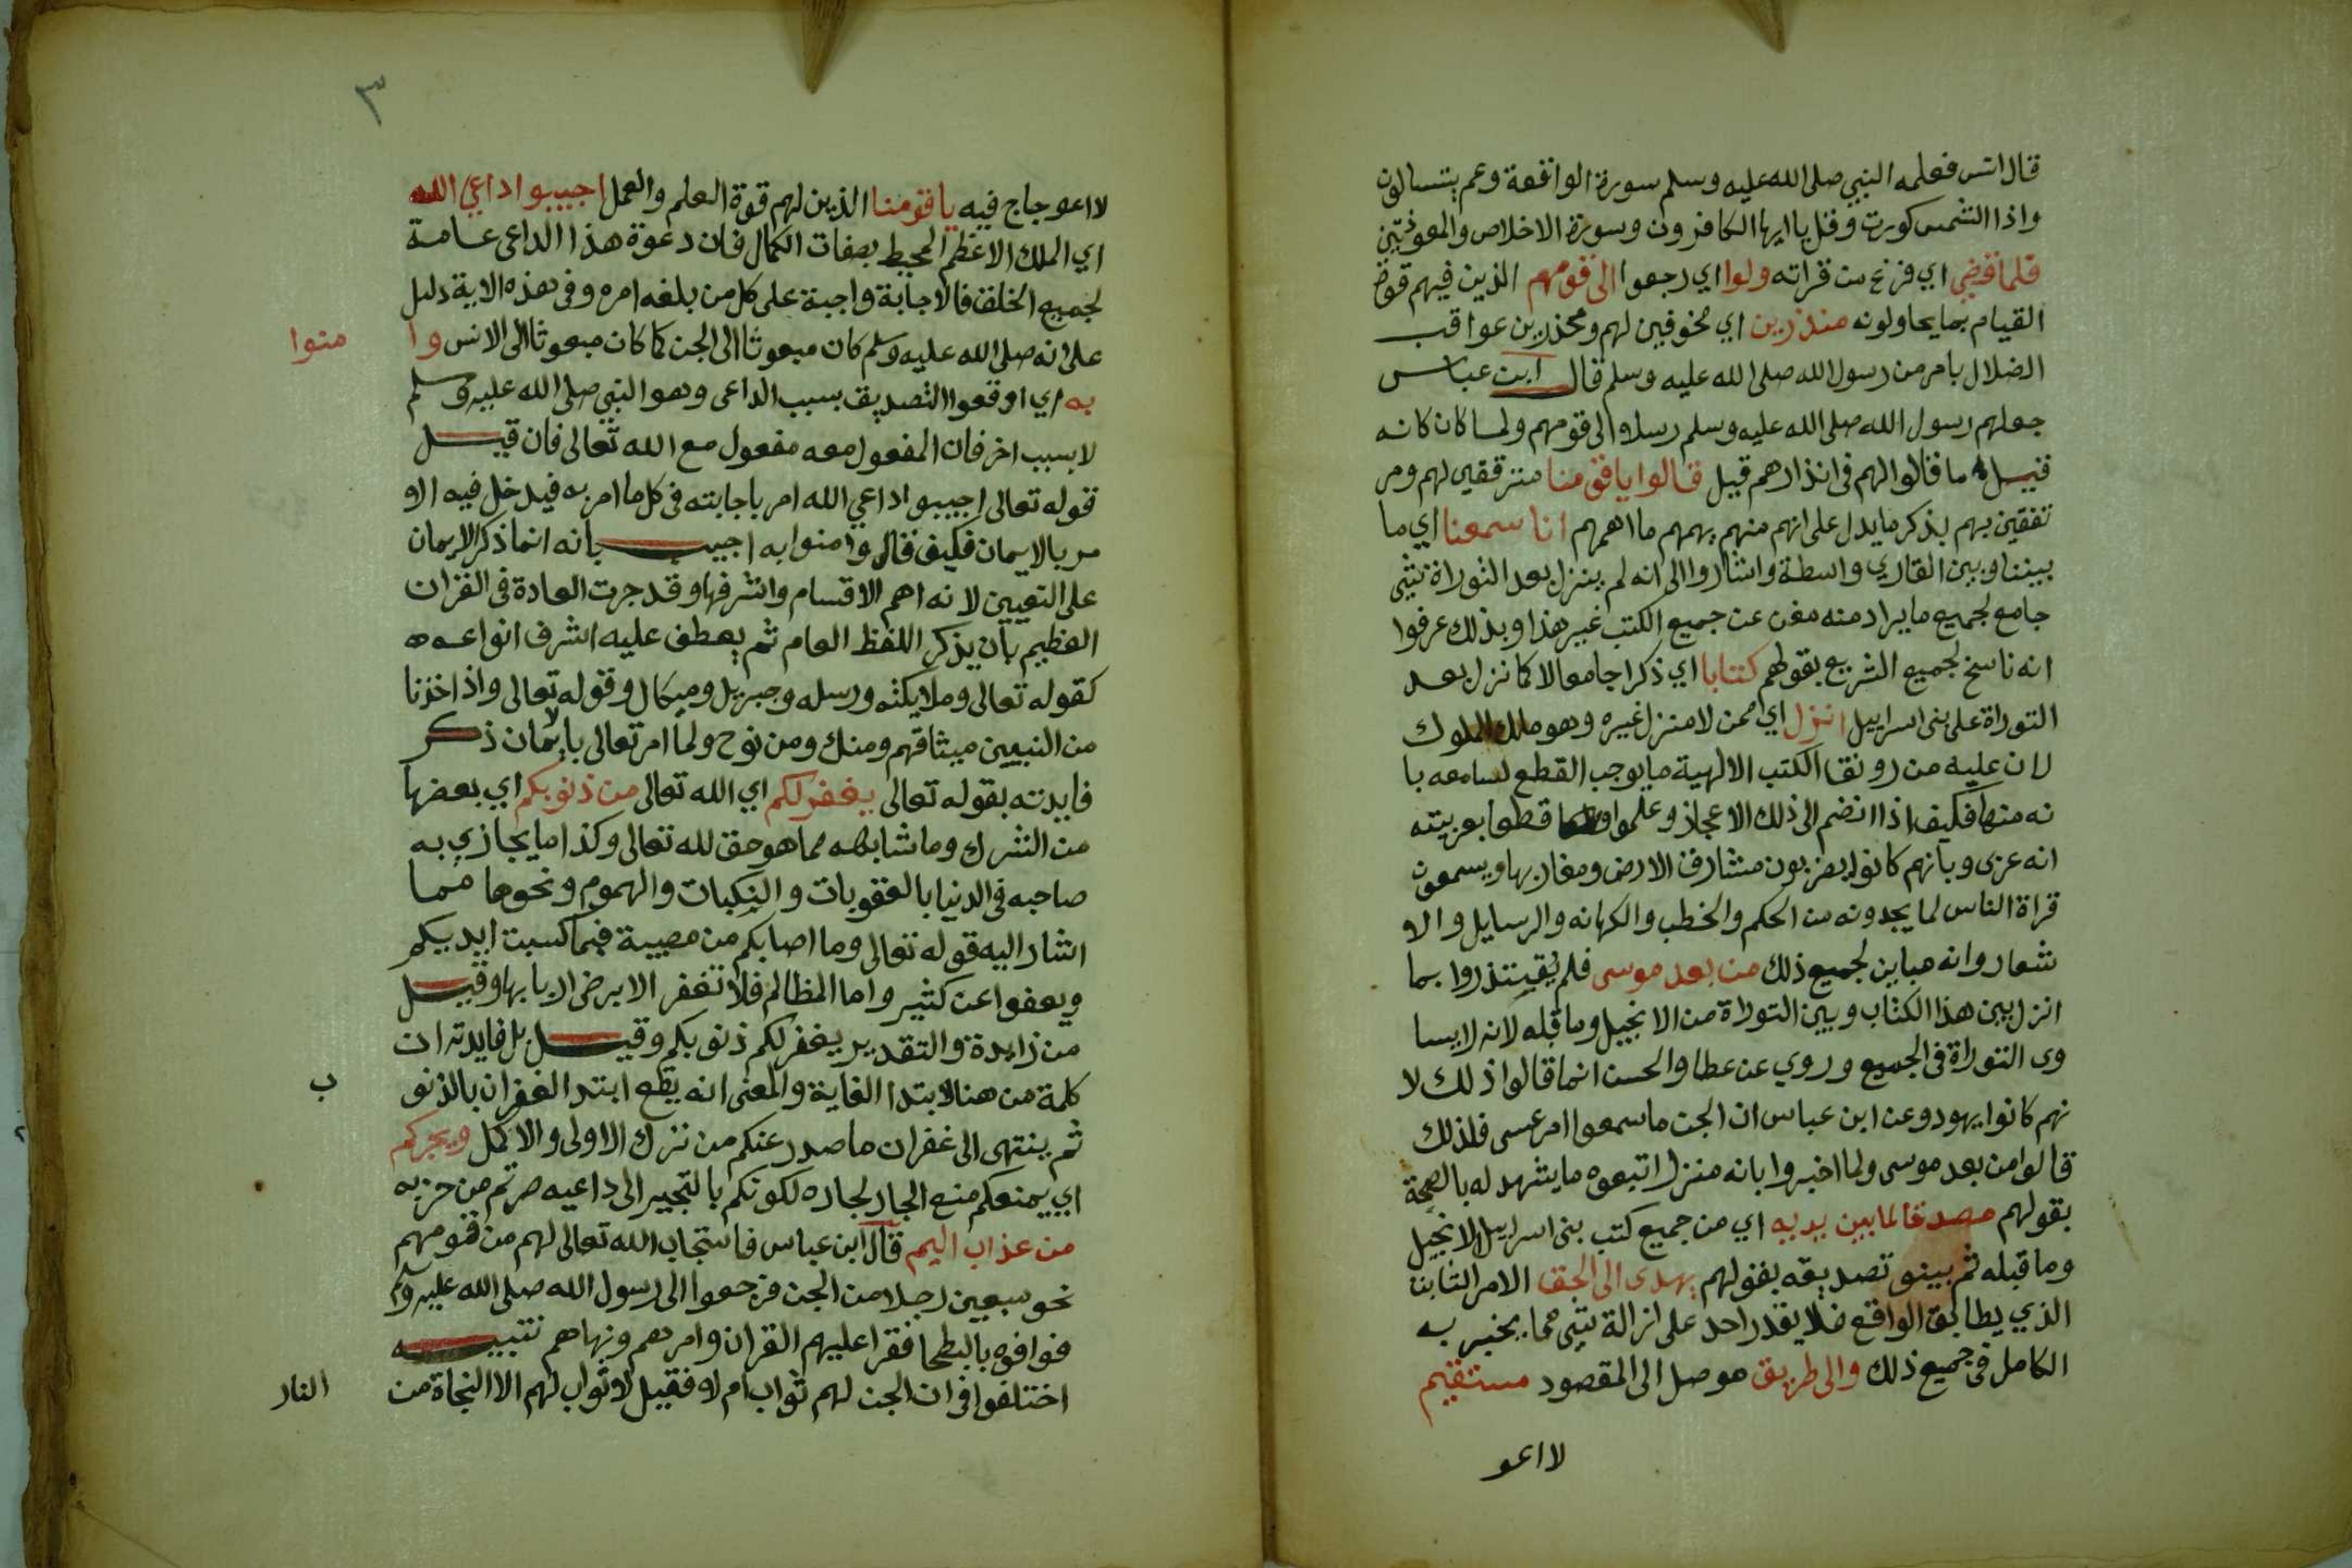 قال انس فعلمه النبي صلى الله عليه وسلم سورة الواقعة وعم يتسالون
واذا الشمس كورت وقل يا ايها الكافرون وسورة الاخلاص والمعوذتين
فلما قضي اي فرغ من قراته ولوا اي رجعوا الى قومهم الذين فيهم قوة
القيام بما يحاولونه منذرين اي مخوفين لهم ومحذرين عواقب
الضلال بامر من رسول الله صلى الله عليه وسلم قال ابن عباس
جعلهم رسول الله صلى الله عليه وسلم رسلا الى قومهم ولما كان كانه
قيل ما قالوا لهم في انذارهم قيل قالوا يا قومنا مترققين لهم ومر
تفقين بهم بذكر ما يدل على انهم منهم يهمهم ما اهمهم انا سمعنا اي ما
بيننا وبين القاري واسطة واشاروا الى انه لم ينزل بعد التوراة شي
جامع لجميع ما يراد منه مغن عن جميع الكتب غير هذا وبذلك عرفوا
انه ناسخ لجميع الشريع بقولهم كتابا اي ذكرا جامعا لا كما نزل بعد
التوراة على بنى اسراييل انزل اي ممن لا منزل غيره وهو ملك الملوك
لان عليه من رونقا الكتب الالهية ما يوجب القطع لسامعه با
نه منها فكيف اذا انضم الى ذلك الاعجاز وعلموا قطعا بعربيته
انه عربى وبانهم كانوا يضربون مشارق الارض ومغاربها ويسمعون
قراة الناس لما يجدونه من الحكم والخطب والكهانه والرسايل والا
شعار وانه مباين لجميع ذلك من بعد موسى فلم يقيتذروا بما
انزل بين هذا الكتاب وبين التوراة من الانجيل وما قبله لانه لا يسا
وى التوراة في الجميع وروي عن عطا والحسن انما قالوا ذلك لا
نهم كانوا يهود وعن ابن عباس ان الجن ما سمعوا امر عسى فلذلك
قالوا من بعد موسى ولما اخبروا بانه منزل اتبعوه ما يشهد له بالصحة
بقولهم مصدقا لما بين يديه اي من جميع كتب بنى اسراييل الانجيل
وما قبله ثم بينو تصديقه بقولهم يهدى الى الحق الامر الثابت
الذي يطابق الواقع فلا يقدر احد على ازالة شى مما يخبر به
الكامل في جميع ذلك والى طريق موصل الى المقصود مستقيم
لا اعو
٣
لا اعوجاج فيه يا قومنا الذين لهم قوة العلم والعمل اجيبوا داعي الله
اي الملك الاعظم المحيط بصفات الكمال فان دعوة هذا الداعى عامة
لجميع الخلق فالاجابة واجبة على كل من بلغه امره وفي هذه الاية دليل
على انه صلى الله عليه وسلم كان مبعوثا الى الجن كما كان مبعوثا الى الانس وا منوا
به اي اوقعوا التصديق بسبب الداعى وهو النبي صلى الله عليه وسلم
لا بسبب اخر فان المفعول معه مفعول مع الله تعالى فان قيل
قوله تعالى اجيبوا داعي الله امر باجابته في كل ما امر به فيدخل فيه الا
مر بالايمان فكيف قال وامنوا به اجيب بانه انما ذكر الايمان
على التعيين لانه اهم الاقسام واشرفها وقد جرت العادة في القران
العظيم بان يذكر اللفظ العام ثم يعطف عليه اشرف انواعه
كقوله تعالى وملايكته ورسله وجبريل وميكال وقوله تعالى واذ اخذنا
من النبيين ميثاقهم ومنك ومن نوح ولما امر تعالى بالايمان ذكر
فايدته بقوله تعالى يغفر لكم اي الله تعالى من ذنوبكم اي بعضها
من الشرك وما شابهه مما هو حق لله تعالى وكذا ما يجازي به
صاحبه في الدنيا بالعقوبات والنكبات والهموم ونحوها مما
اشار اليه قوله تعالى وما اصابكم من مصيبة فبما كسبت ايديكم
ويعفوا عن كثير واما المظالم فلا تغفر الا برضى اربابها وقيل
من زايدة والتقدير يغفر لكم ذنوبكم وقيل بل فايدته ان
كلمة من هنا لابتدا الغاية والمعنى انه يقع ابتدا الغفران بالذنو ب
ثم ينتهى الى غفران ما صدر عنكم من ترك الاولى والاكمل ويجركم
اي يمنعكم منع الجار لجاره لكونكم بالتجير الى داعيه صرتم من حزبه
من عذاب اليم قال ابن عباس فاستجاب الله تعالى لهم من قومهم
نحو سبعين رجلا من الجن فرجعوا الى رسول الله صلى الله عليه وسلم
فوافوه بالبطحا فقرا عليهم القران وامرهم ونهاهم تنبيه
اختلفوا في ان الجن لهم ثواب ام لا فقيل لا ثواب لهم الا النجاة من النار